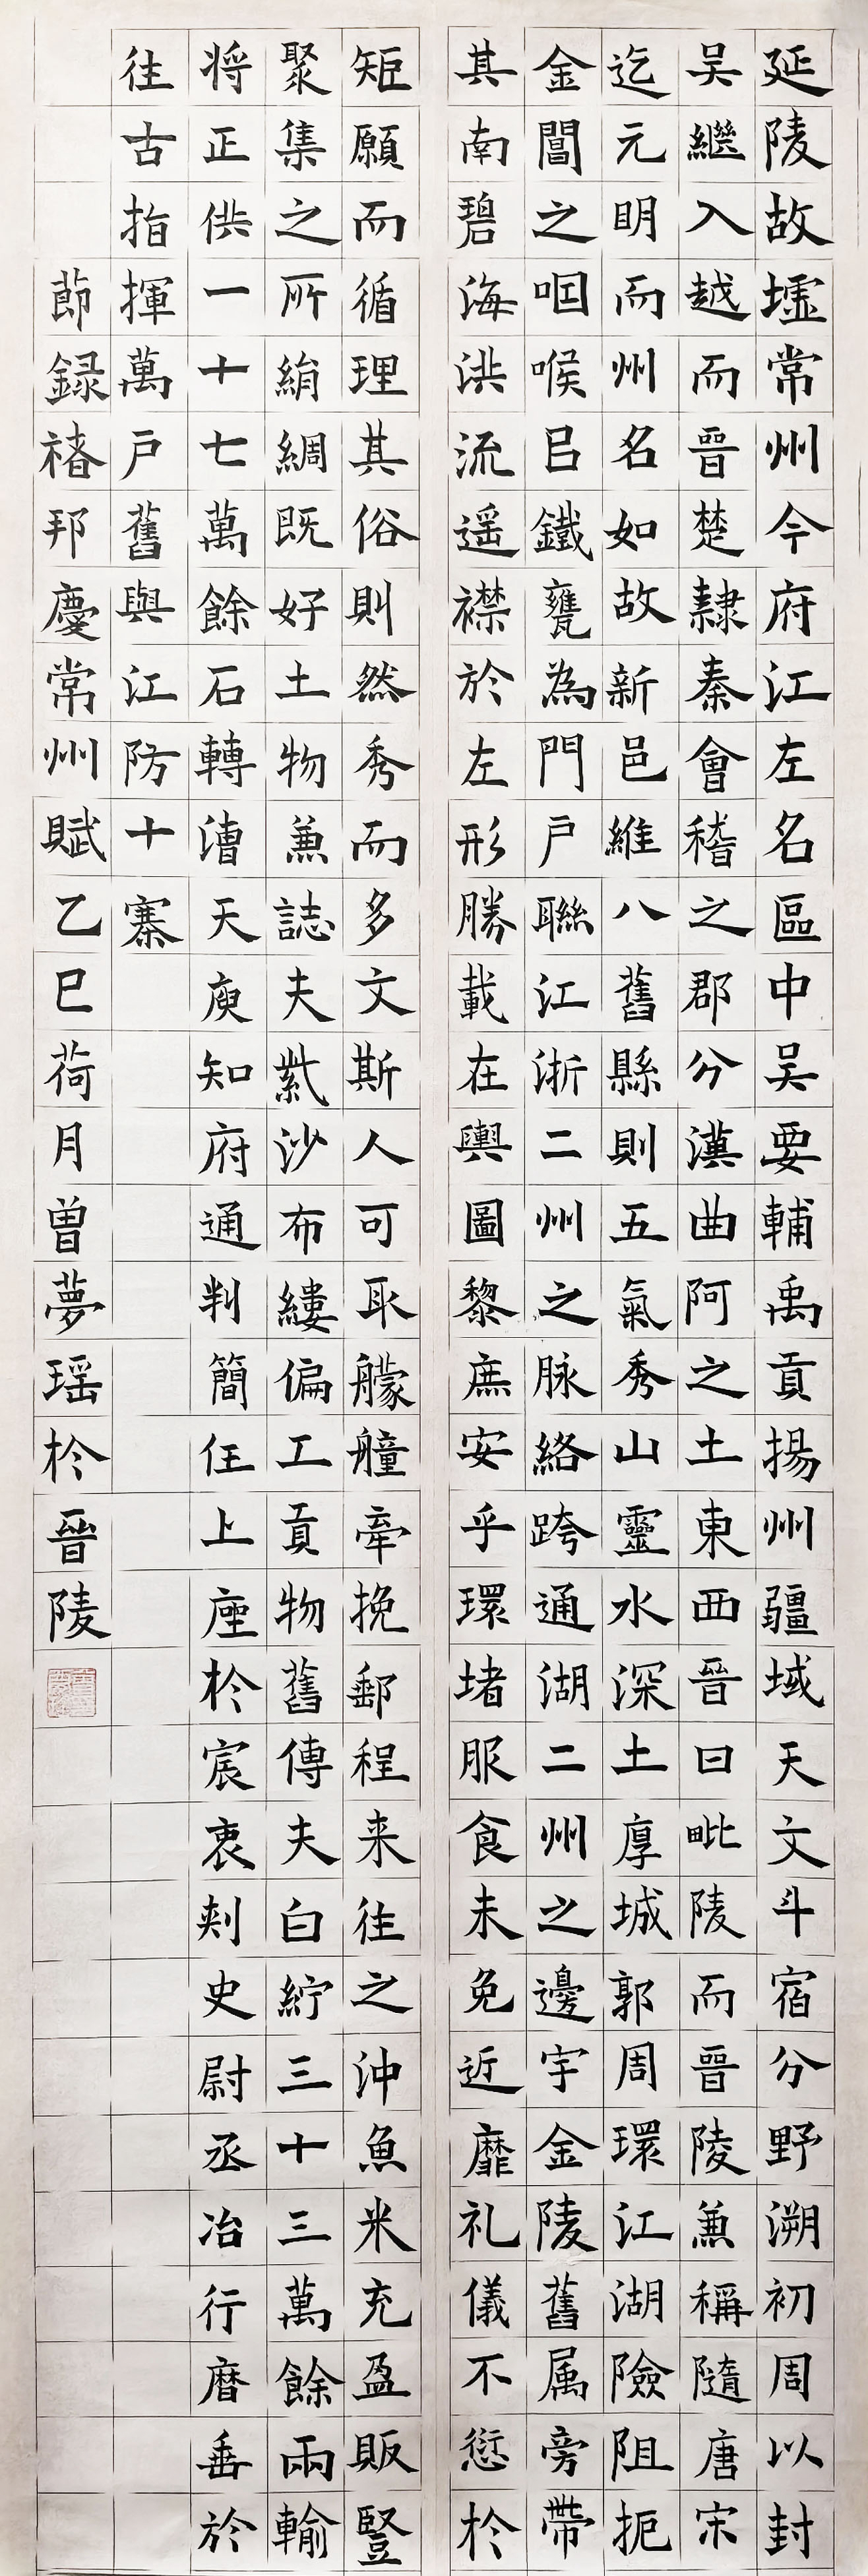 延陵故墟常州今府江左名區中吴要輔禹貢揚州疆域天文斗宿分野溯初周以封
吴繼入越而晉楚隸秦會稽之郡分漢曲阿之土東西晉曰毗陵而晉陵兼稱隨唐宋
迄元明而州名如故新邑維八舊縣則五氣秀山靈水深土厚城郭周環江湖險阻扼
金閶之咽喉吕鐵甕為門戶聯江浙二州之脉絡跨通湖二州之邊宇金陵舊属旁帶
其南碧海洪流遥襟於左形勝載在輿圖黎庶安乎環堵服食未免近靡礼儀不愆於
矩願而循理其俗則然秀而多文斯人可取艨艟牽挽郵程来往之沖魚米充盈販豎
聚集之所絹綢既好土物兼誌夫紫沙布縷偏工貢物舊傳夫白紵三十三萬餘兩輸
将正供一十七萬餘石轉漕天庾知府通判簡任上座於宸衷刾史尉丞冶行曆垂於
往古指揮萬戶舊與江防十寨
莭録禇邦慶常州賦乙巳荷月曾夢瑶於晉陵